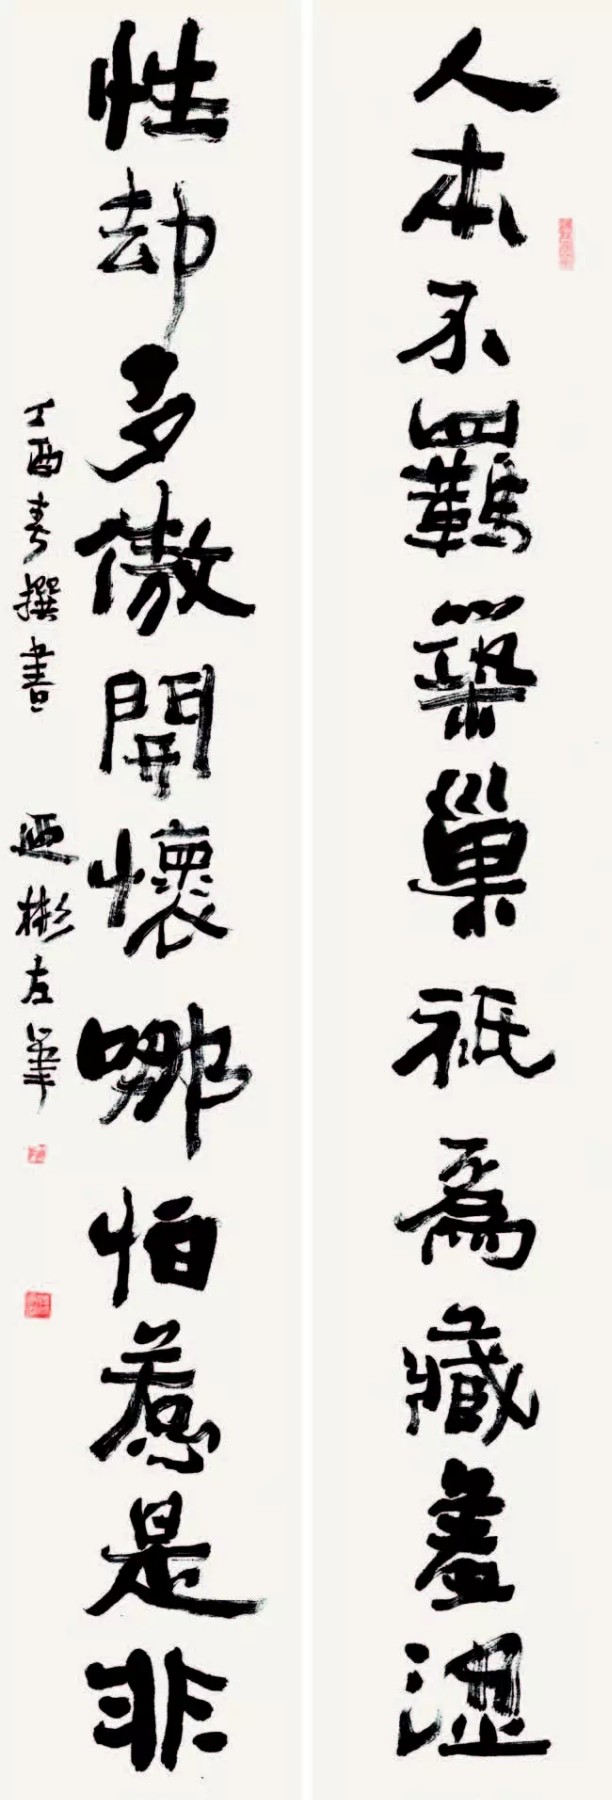 人本不羈築巢祇爲藏羞澀
性却多傲開懷哪怕惹是非
丁酉春撰書 迺彬左筆